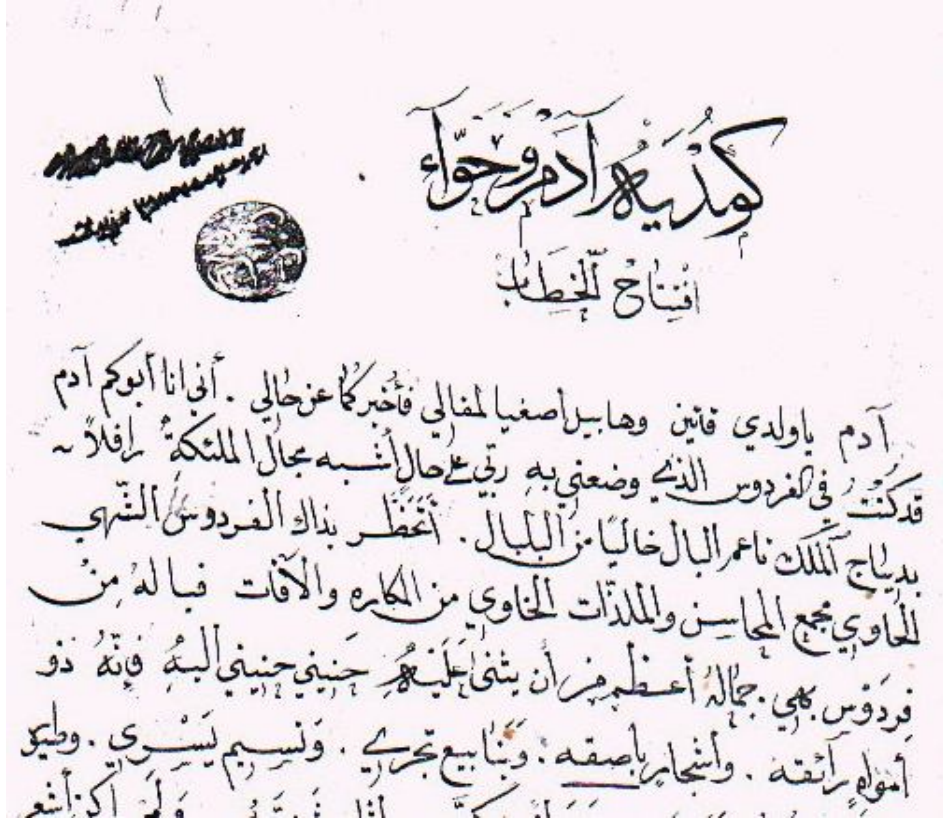 كوُمُدْيَهُ آدَم وَحَوّآء
افتِتاحُ الخِطَاب
آدم ياولدي قاتين وهابيل أصغيا لمقالي فأخبركما عن حالي . أني انا أبوكم آدم
قد كُنْتُ في الفردوس الذي وضعني به ربّي على حال أشبه بحال الملئكة رافلاً
بديباج الملك ناعم البال خاليًا من البلبال . بذاك الفردوس الشهي
الحاوي مجمع المحاسن والملذّات الخاوي من المكاره والآفات فيا لهُ مِنْ
فِردَوْس بهي . جمالهُ أعظم من أن يثنى عَلَيْهِ حَنيني حنيني اليهِ فإنّهُ ذو
أمواهٍ رائقه . وأشجار باصقه . وَينابيع تجري . وَنسيم يَسْري . وطيور
ولم اكن أشعر